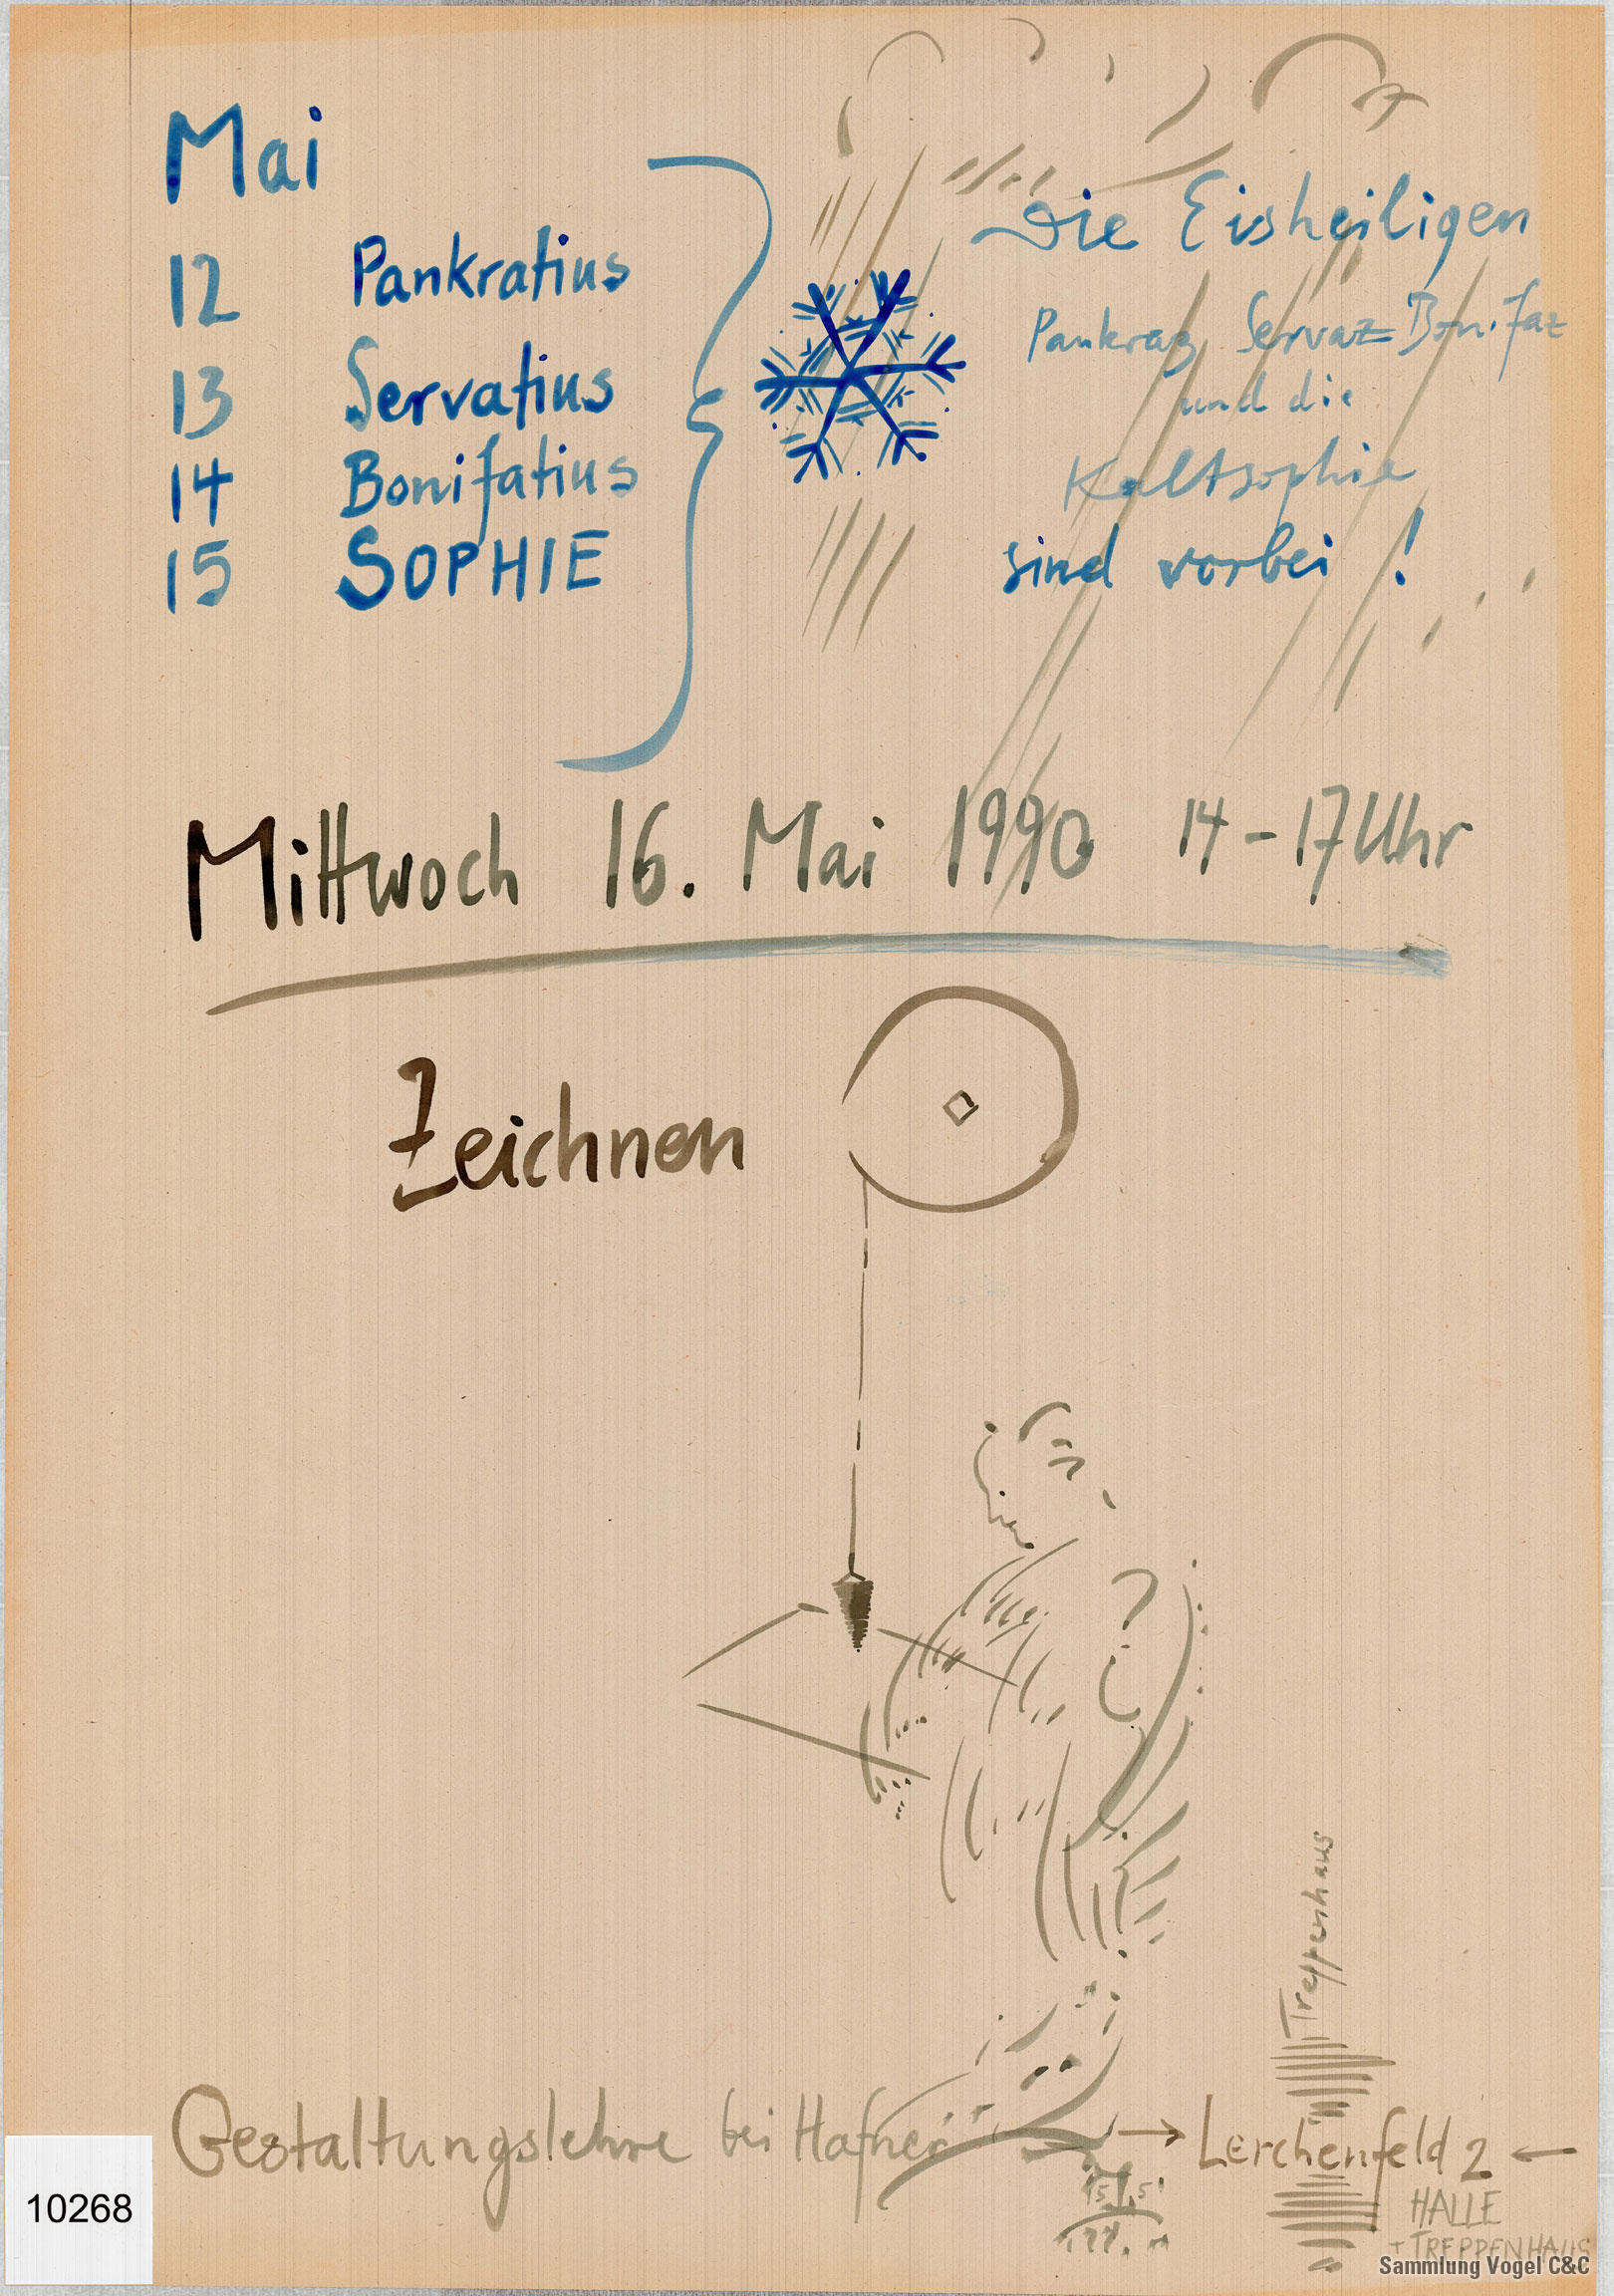 Mai
12 Pankratius
13 Servatius
14 Bonifatius
15 SOPHIE
Die Eisheiligen
Pankraz Servaz Bonifaz
und die
Kaltsophie
sind vorbei !
Mittwoch 16. Mai 1990 14-17 Uhr
Zeichnen
Treppenhaus
Gestaltungslehre bei Hafner → Lerchenfeld 2 ←
HALLE
+ TREPPENHAUS
10268
Sammlung Vogel C&C